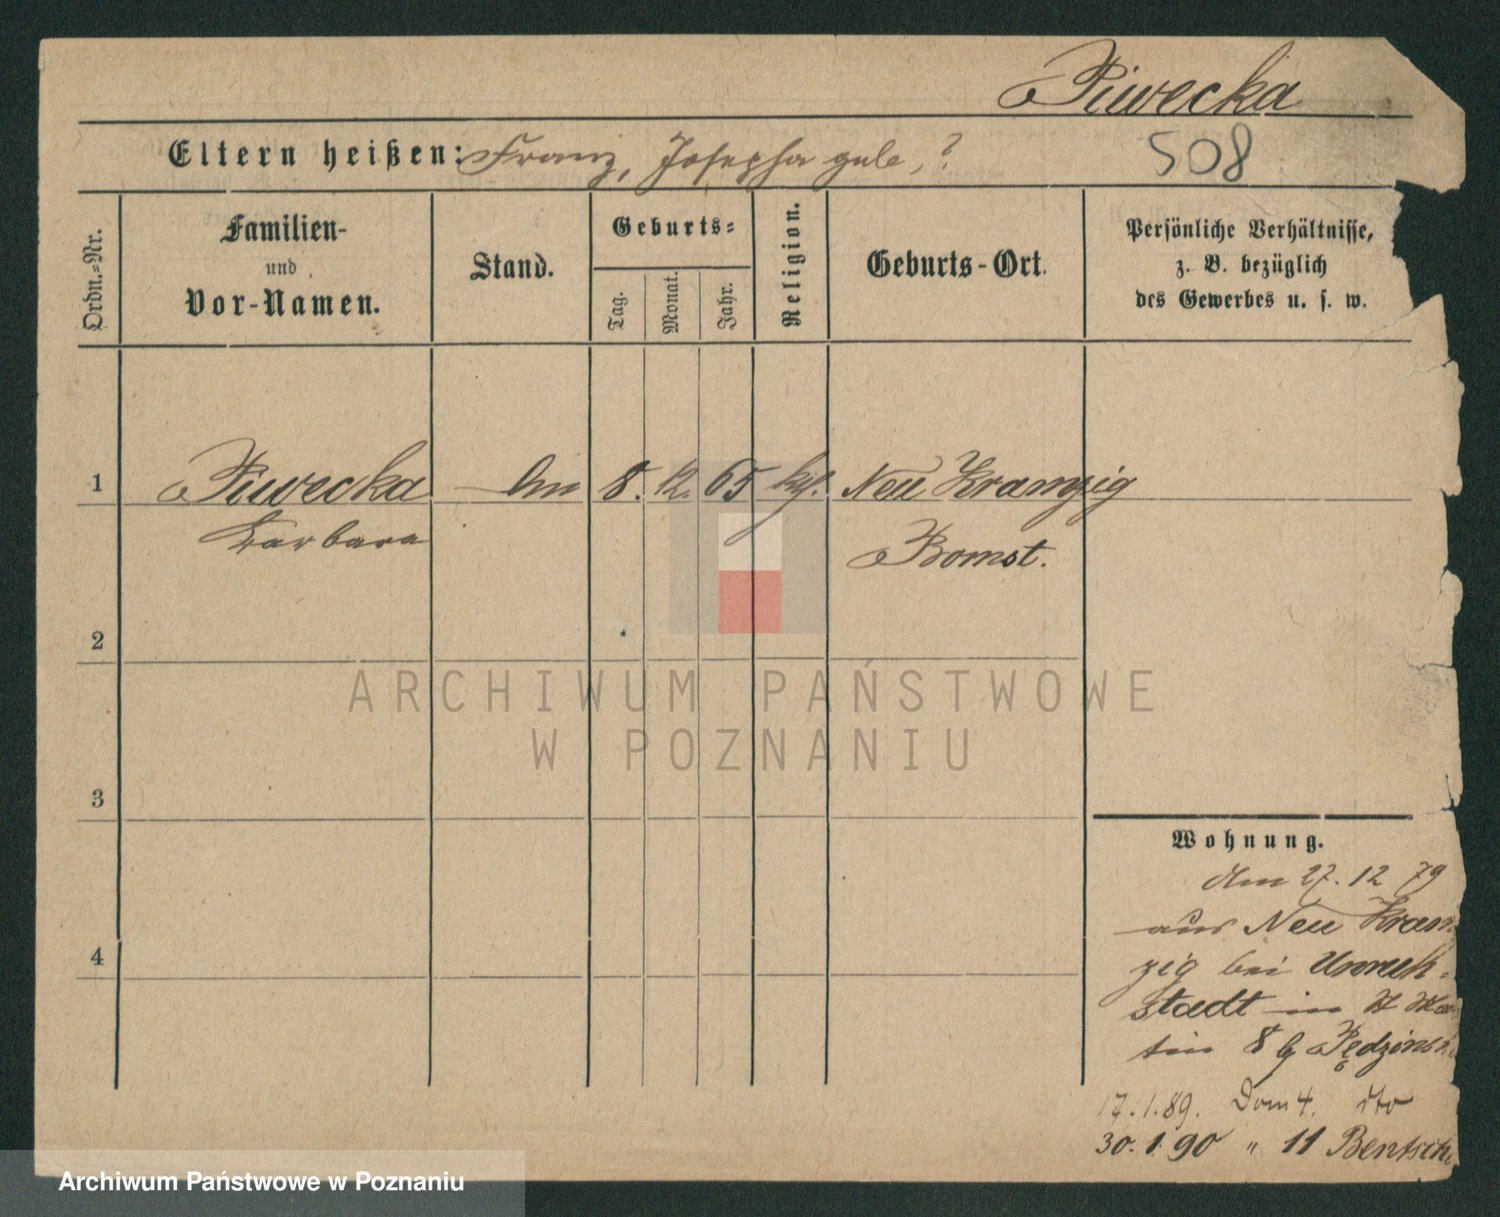 Piwecka
508
Eltern heißen: Franz, Josepha gub. ?
Ordn.=Nr.
Familien-
und
Vor-Namen.
Stand.
Geburts=
Tag.
Monat.
Jahr.
Religion.
Geburts-Ort.
Persönliche Verhältnisse,
z. B. bezüglich
des Gewerbes u. s. w.
1 Piwecka 8. 12. 65 kth. Neu Kramzig
Barbara Bomst.
2
3
4
Wohnung.
27. 12 79
aus Neu Kram
zig bei Unruh-
stadt in St Mar
tin 8 b Pędzinsk
17. 1. 89. Dom 4. dto
30. 1. 90 " 11 Bentsch
ARCHIWUM PAŃSTWOWE
W POZNANIU
Archiwum Państwowe w Poznaniu